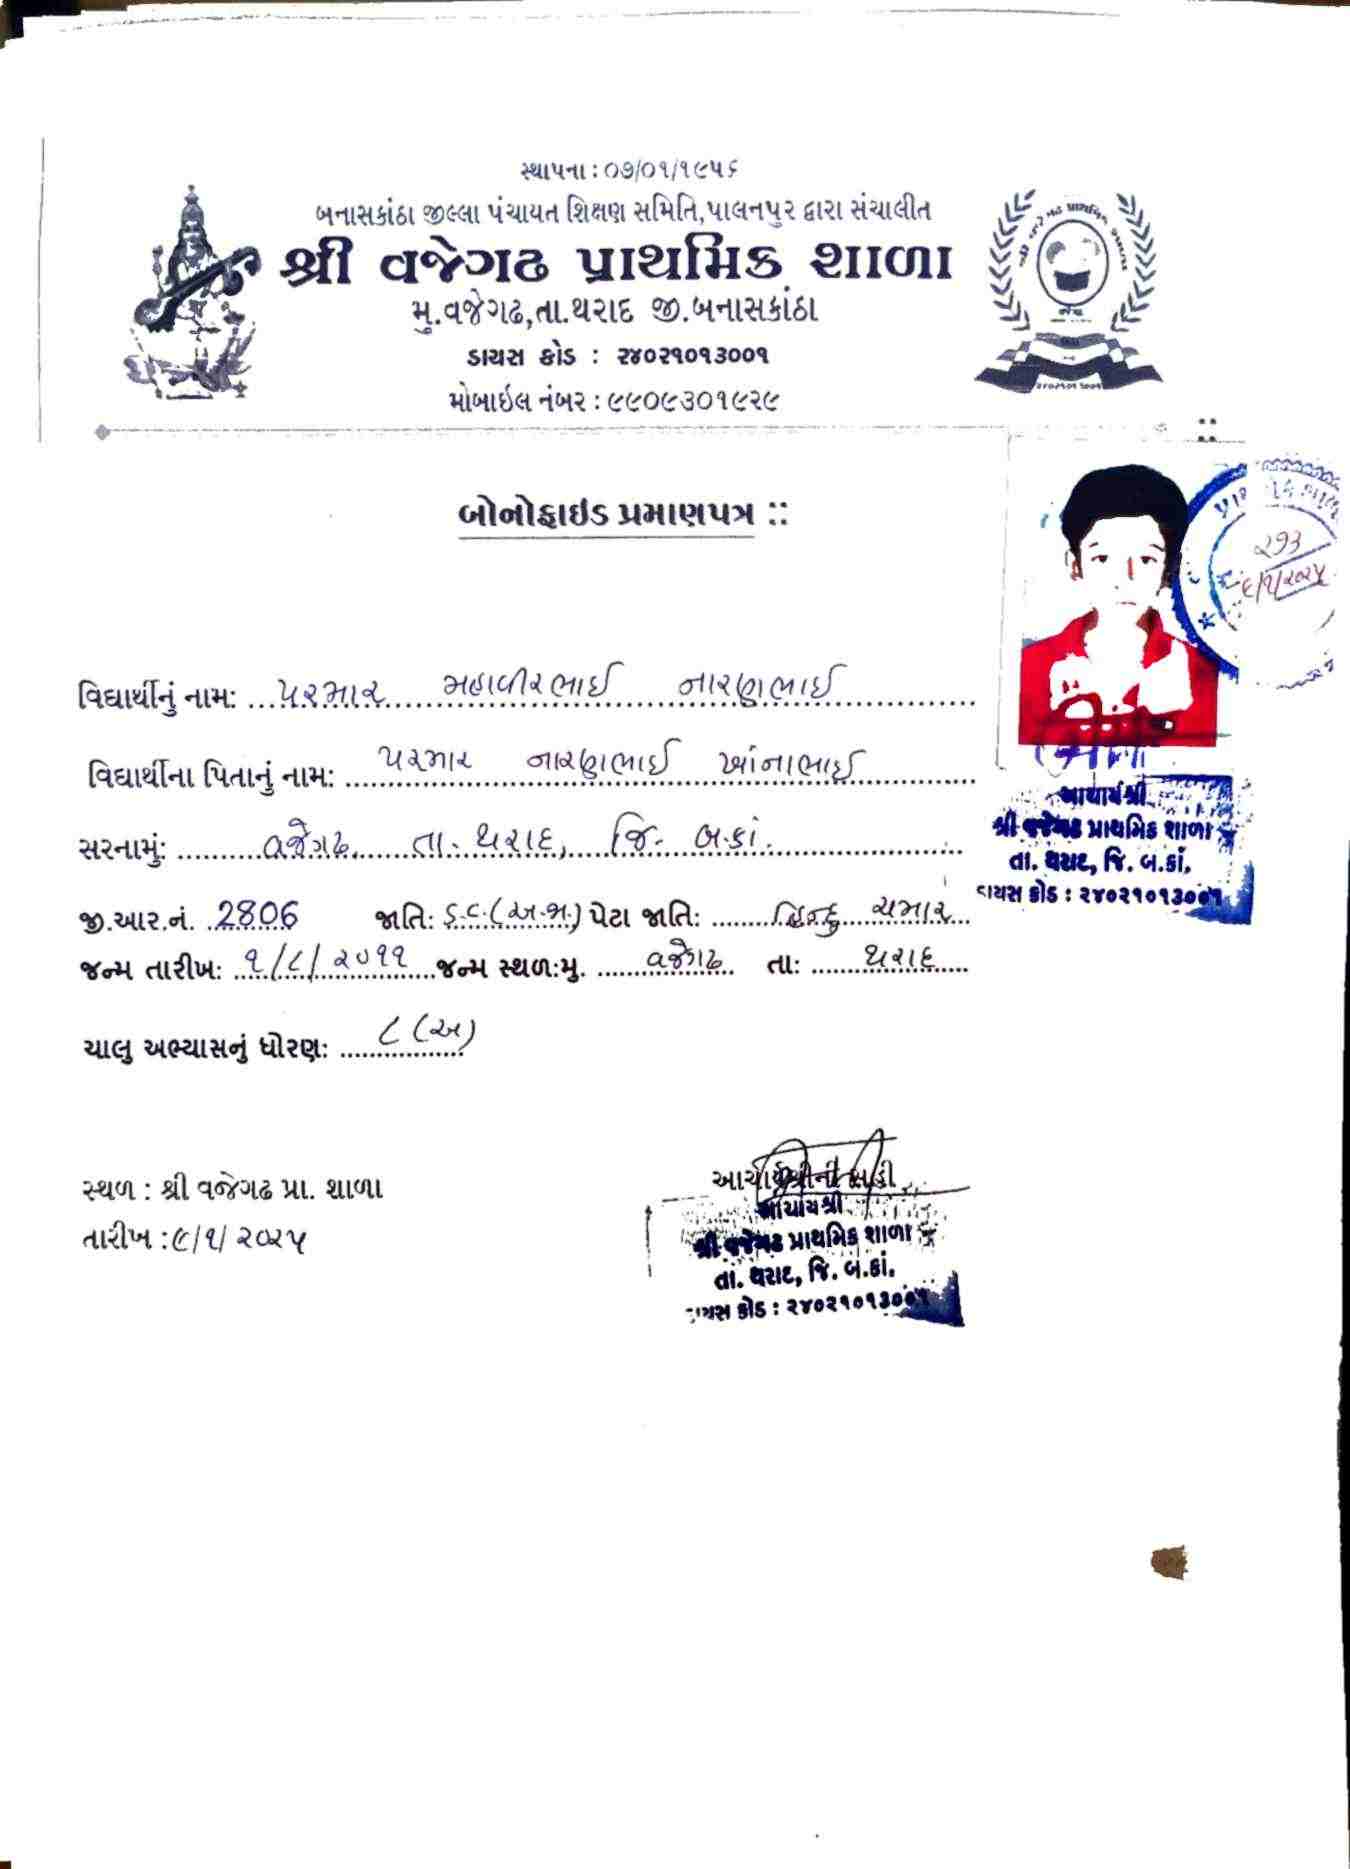 સ્થાપના : ૦૭/૦૧/૧૯૫૬
બનાસકાંઠા જીલ્લા પંચાયત શિક્ષણ સમિતિ,પાલનપુર દ્વારા સંચાલીત
શ્રી વજેગઢ પ્રાથમિક શાળા
મુ.વજેગઢ,તા.થરાદ જી.બનાસકાંઠા
ડાયસ કોડ : ૨૪૦૨૧૦૧૩૦૦૧
મોબાઈલ નંબર : ૯૯૦૯૩૦૧૯૨૯
બોનોફાઇડ પ્રમાણપત્ર ::
૨૧૩
૯/૧/૨૦૨૫
વિદ્યાર્થીનું નામ: પરમાર મહાવીરભાઈ નારણભાઈ
વિદ્યાર્થીના પિતાનું નામ: પરમાર નારણભાઈ ખાંનાભાઈ
સરનામું: વજેગઢ, તા. થરાદ, જિ. બ.કાં.
આચાર્યશ્રી
શ્રી વજેગઢ પ્રાથમિક શાળા
તા. થરાદ, જિ. બ.કાં.
ડાયસ કોડ : ૨૪૦૨૧૦૧૩૦૦૧
જી.આર.નં. 2806 જાતિ: (અ.જા.) પેટા જાતિ: હિન્દુ ચમાર
જન્મ તારીખ: ૧/૮/૨૦૧૧ જન્મ સ્થળ:મુ. વજેગઢ તા: થરાદ
ચાલુ અભ્યાસનું ધોરણ: ૮ (અ)
સ્થળ : શ્રી વજેગઢ પ્રા. શાળા
તારીખ :૯/૧/૨૦૨૫
આચાર્યશ્રીની સહી
આચાર્યશ્રી
શ્રી વજેગઢ પ્રાથમિક શાળા
તા. થરાદ, જિ. બ.કાં.
ડાયસ કોડ : ૨૪૦૨૧૦૧૩૦૦૧